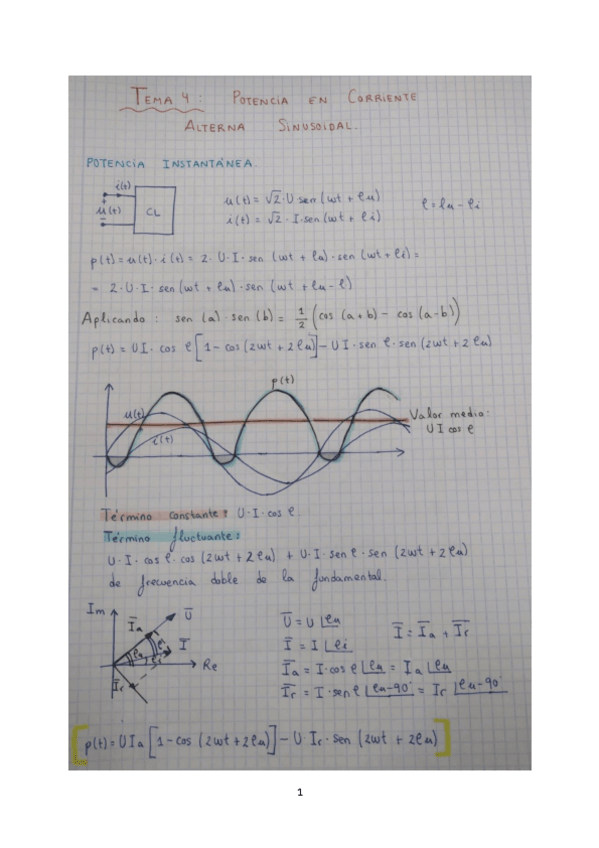 TEMA 4: POTENCIA EN CORRIENTE
ALTERNA SINUSOIDAL.
POTENCIA INSTANTÁNEA.
i(t)
+
u(t)
CL
u(t) = √2·U sen (wt + φu)
i(t) = √2 · I·sen (wt + φi)
φ = φu - φi
p(t) = u(t)·i(t) = 2·U·I·sen (wt + φu)·sen (wt + φi) =
= 2·U·I·sen (wt + φu)·sen (wt + φu - φ)
Aplicando: sen (a)·sen (b) = 1/2 (cos (a+b) - cos (a-b))
p(t) = UI· cos φ [1 - cos (2wt + 2φu)] - UI·sen φ·sen (2wt + 2φu)
p(t)
u(t)
i(t)
Valor medio:
UI cos φ
Término constante: U·I·cos φ.
Término fluctuante:
U·I·cos φ·cos (2wt + 2φu) + U·I·sen φ·sen (2wt + 2φu)
de frecuencia doble de la fundamental.
Im
Īa
Ū
Ī
φu
φ
φi
Re
Īr
Ū = U∟φu
Ī = I∟φi
Ī = Īa + Īr
Īa = I·cos φ∟φu = Ia∟φu
Īr = I·sen φ∟φu-90° = Ir∟φu-90°
[p(t) = UIa [1-cos (2wt+2φu)] - U Ir·sen (2wt + 2φu)]
1